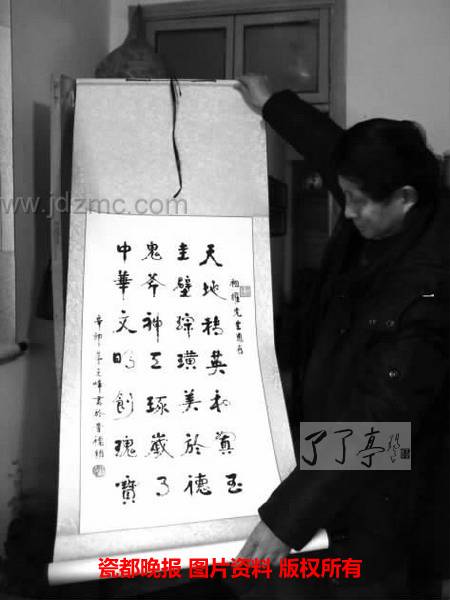 www.jdzmc.com
天地英和玉
圭璧琮璜美於德
鬼斧神工琢
中華文明創瑰寶
先生惠存
辛卯年書於景德鎮
了了亭
瓷都晚报 图片资料 版权所有